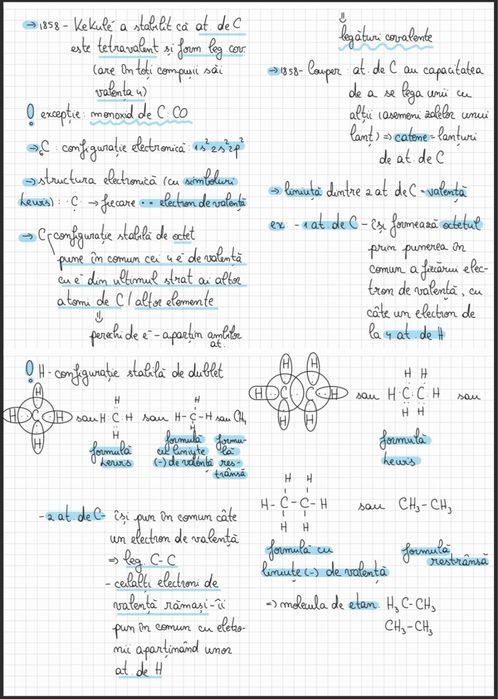 → 1858 - Kekulé a stabilit că at. de C
este tetravalent și form leg cov
(are în toți compușii săi
valența 4)
! excepție: monoxid de C: CO
→ C : configurație electronică: 1s² 2s² 2p²
→ structura electronică (cu simboluri
Lewis): ·C· → fiecare •• electron de valență
→ C configurație stabilă de octet
pune în comun cei 4 e⁻ de valență
cu e⁻ din ultimul strat ai altor
atomi de C / altor elemente
⇓
perechi de e⁻ - aparțin ambilor
at.
! H - configurație stabilă de dublet
H
H C H
H
sau
H
H : C : H
H
sau
H
H - C - H
H
sau CH₄
formulă
Lewis
formulă
cu liniuțe
(-) de valență
formu-
lă
res-
trânsă
- 2 at. de C - își pun în comun câte
un electron de valență
⇒ leg C-C
- ceilalți electroni de
valență rămași - îi
pun în comun cu elctro-
nii aparținând unor
at de H
⇓
legături covalente
→ 1858 - Couper: at. de C au capacitatea
de a se lega unii cu
alții (asemeni zalelor unui
lanț) ⇒ catene = lanțuri
de at. de C
→ liniuță dintre 2 at de C = valență
ex - 1 at. de C - își formează octetul
prin punerea în
comun a fiecărui elec-
tron de valență, cu
câte un electron de
la 4 at. de H
H H
H C C H
H H
sau
H H
H : C : C : H
H H
sau
formulă
Lewis
H H
H - C - C - H
H H
sau CH₃ - CH₃
formulă cu
liniuțe (-) de valență
formulă
restrânsă
⇒ molecula de etan H₃C - CH₃
CH₃ - CH₃